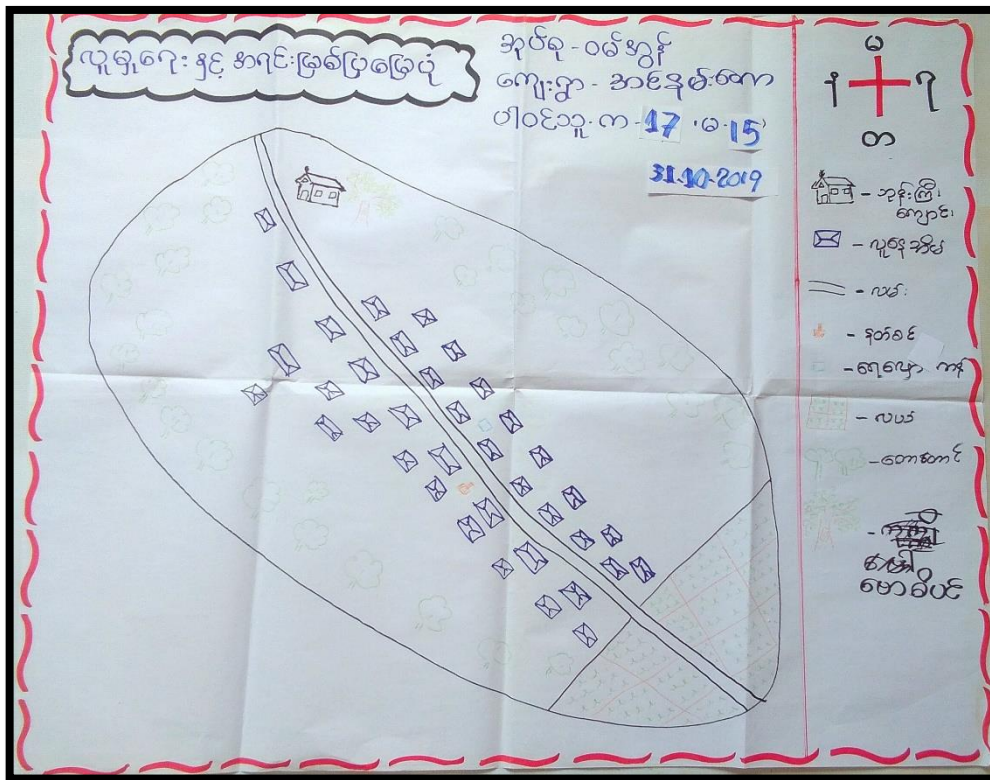 လူမှုရေး နှင့် အရင်းမြစ်ပြမြေပုံ
အုပ်စု - ဝမ်အွန်
ကျေးရွာ -
ပါဝင်သူ . က - 17 . မ - 15
31.10.2019
မ
န
တ
- ဘုန်းကြီး
ကျောင်း
- လူနေအိမ်
- လမ်း
- နတ်စင်
- ရေလှောင်ကန်
- လယ်
- တောတောင်
ဗောဓိပင်